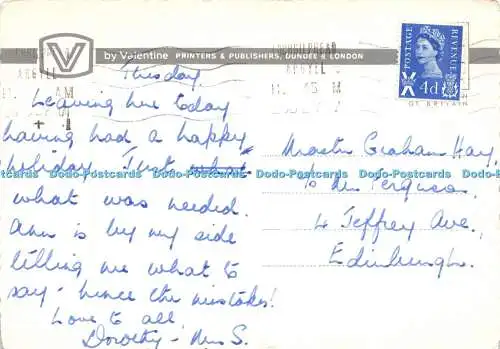 by Valentine PRINTERS & PUBLISHERS, DUNDEE & LONDON
POSTAGE REVENUE
4d
ARGYLL
AM
OF BRITAIN
Tuesday.
Leaving here today
having had a happy
holiday. Just what
what was needed.
Ann is by my side
telling me what to
say - hence the mistakes!
Love to all,
Dorothy - Mrs S.
Master Graham Hay,
Mrs Ferguson,
4 Jeffrey Ave,
Edinburgh.
Dodo-Postcards Dodo-Postcards Dodo-Postcards Dodo-Postcards Dodo-Postcards